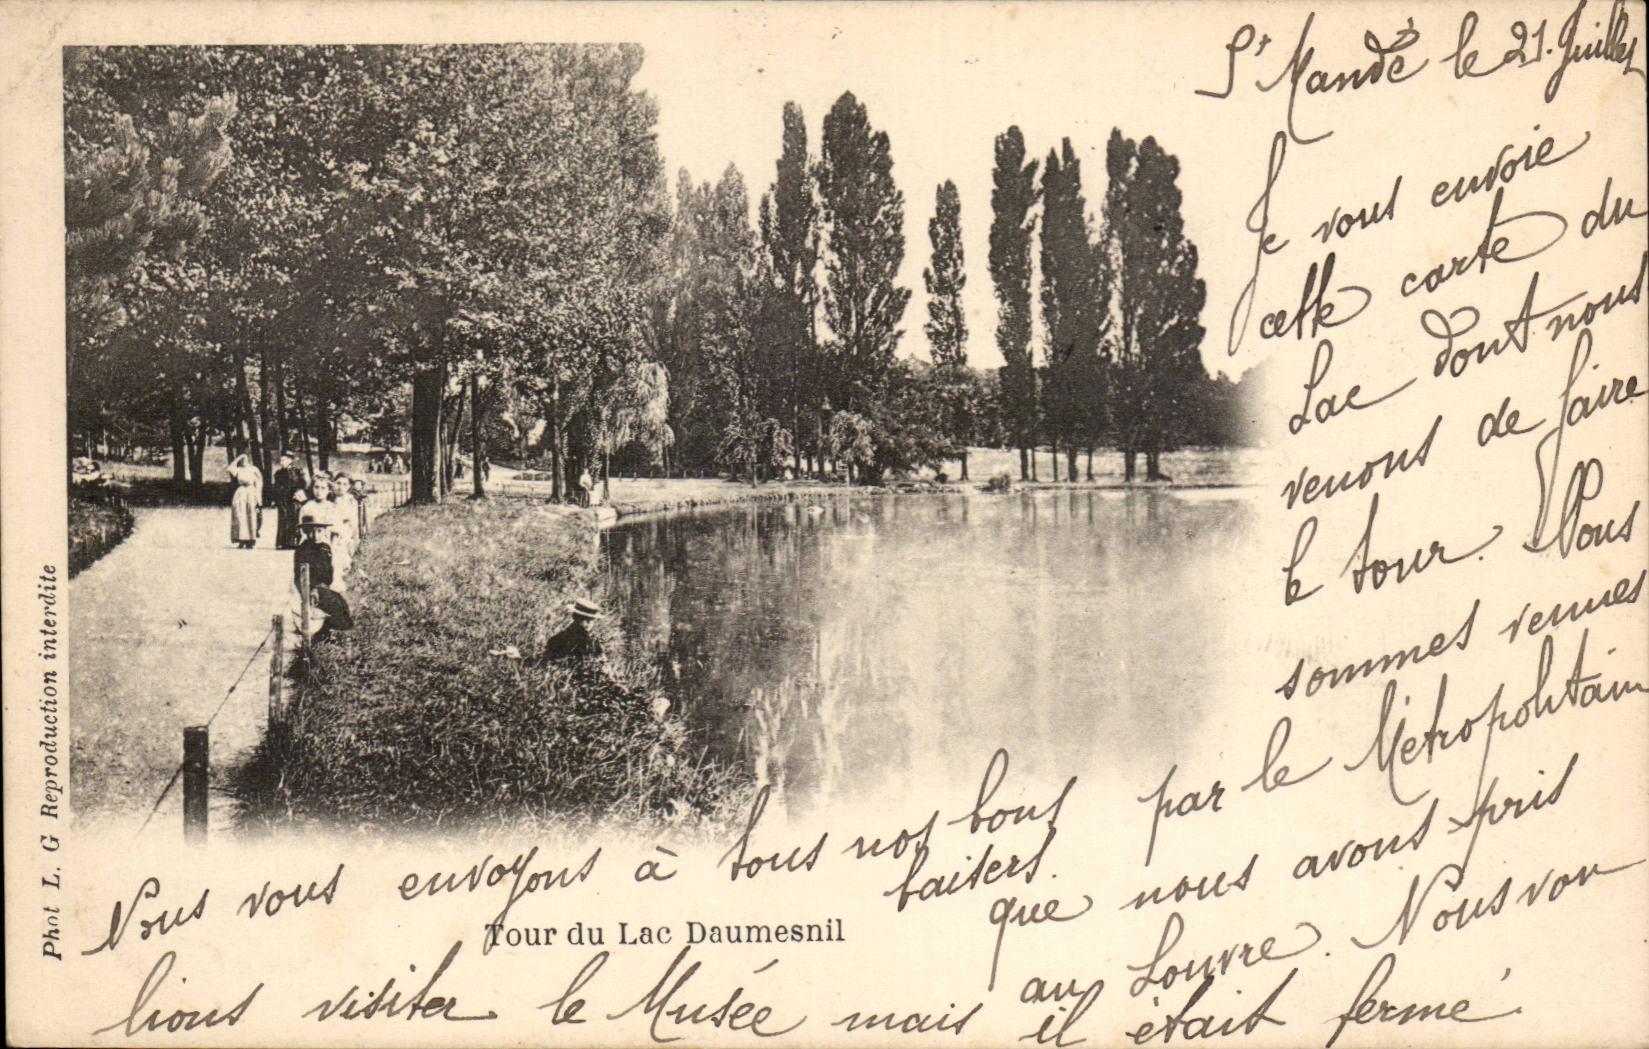 St Mandé le 21 Juillet
Je vous envoie
cette carte du
Lac dont nous
venons de faire
le tour. Nous
sommes venues
par le Métropolitain
que nous avons pris
au Louvre. Nous vou
lions visiter le Musée mais il était fermé.
Nous vous envoyons à tous nos bons
baisers.
Tour du Lac Daumesnil
Phot L. G Reproduction interdite